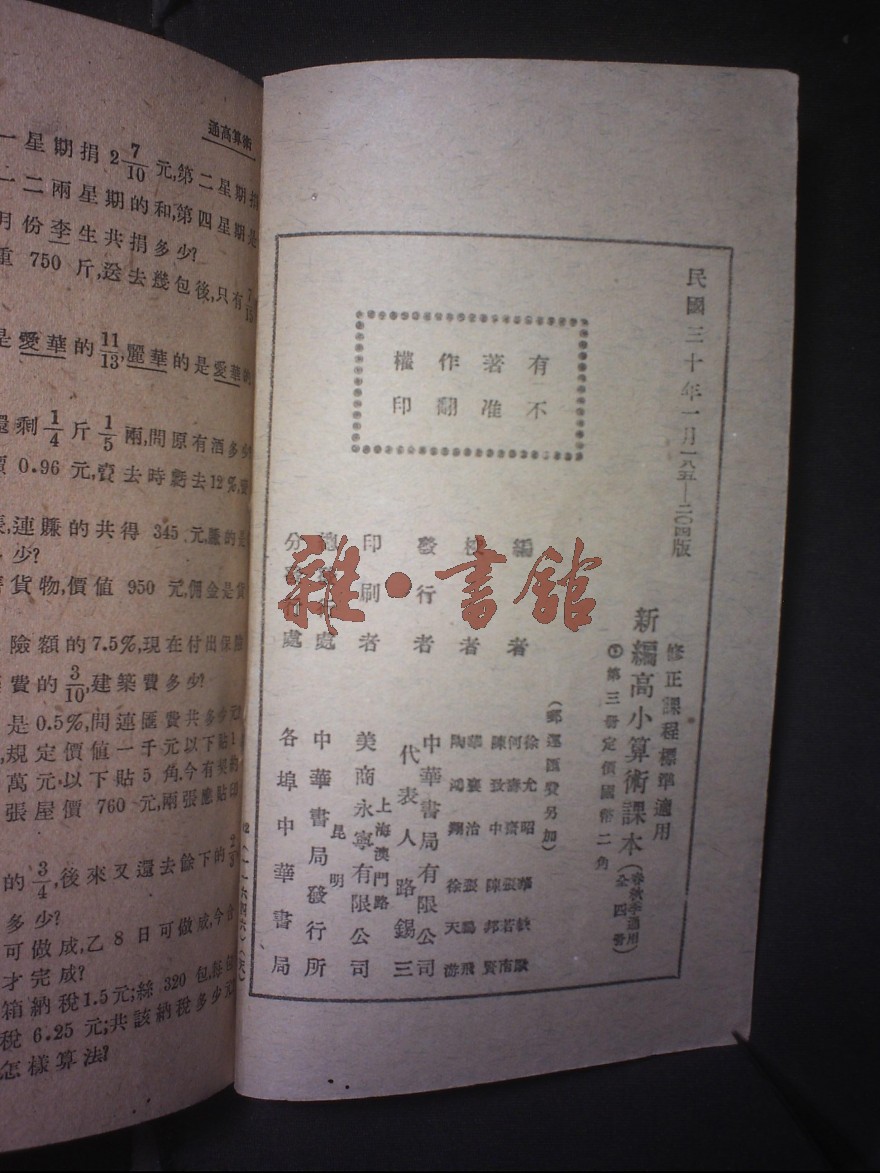 通高算術
一星期捐2 7/10元,第二星期捐
二兩星期的和,第四星期是
月份李生共捐多少?
重 750 斤,送去幾包後,只有
是愛華的11/13,麗華的是愛華的
還剩1/4斤1/5兩,問原有酒多少
價 0.96 元,賣去時虧去12%,
長,連賺的共得 345 元,賺的是
少?
貨物,價值 950 元,佣金是貨
險額的7.5%,現在付出保險
費的3/10,建築費多少?
是0.5%,問連匯費共多少元
規定價值一千元以下貼1
萬元,以下貼5角,今有契約
張屋價 760 元,兩張應貼印
的3/4,後來又還去餘下的2/3
多少?
可做成,乙8日可做成,今合
才完成?
箱納稅1.5元;絲 320 包,每包
稅 6.25 元;共該納稅多少元
怎樣算法?
民國三十年一月一八五—二〇四版
有著作權
不准翻印
修正課程標準適用
新編高小算術課本(春秋季通用 全四冊)
第三冊定價國幣二角
(郵運匯費另加)
編者
徐允昭
何齋
陳致中 陳邦賢
校者
華襄治 張鵬飛
陶鴻翔 徐天游
發行者
中華書局有限公司
代表人路錫三
印刷者
上海澳門路
美商永寧有限公司
總發行處
昆明
中華書局發行所
分發行處
各埠中華書局
雜·書館